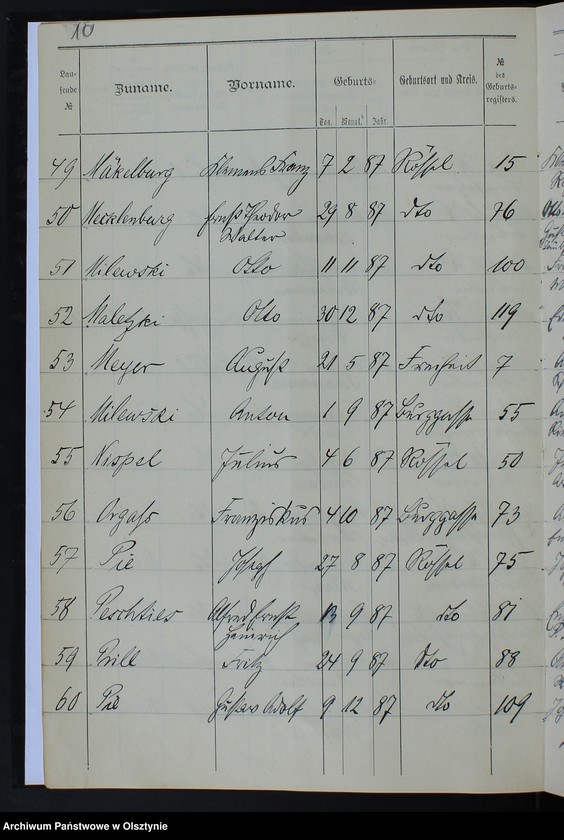 10
Lau-
fende
№
Zuname.
Vorname.
Geburts-
Tag. Monat. Jahr.
Geburtsort und Kreis.
№
des
Geburts-
registers.
49 Mäkelburg Klemens Franz 7 2 87 Rößel 15
50 Mecklenburg Ernst Theodor 29 8 87 dto 76
Walter
51 Milewski Otto 11 11 87 dto 100
52 Maletzki Otto 30 12 87 dto 119
53 Meyer August 21 5 87 Freiheit 7
54 Milewski Anton 1 9 87 Burggasse 55
55 Nispel Julius 4 6 87 Rößel 50
56 Orgass Franziskus 4 10 87 Burggasse 73
57 Pie Joseph 27 8 87 Rößel 75
58 Peschties Alfred Ernst 9 87 dto 81
Heinrich
59 Prill Fritz 24 9 87 dto 88
60 Pie Gustav Adolf 9 12 87 dto 109
Archiwum Państwowe w Olsztynie